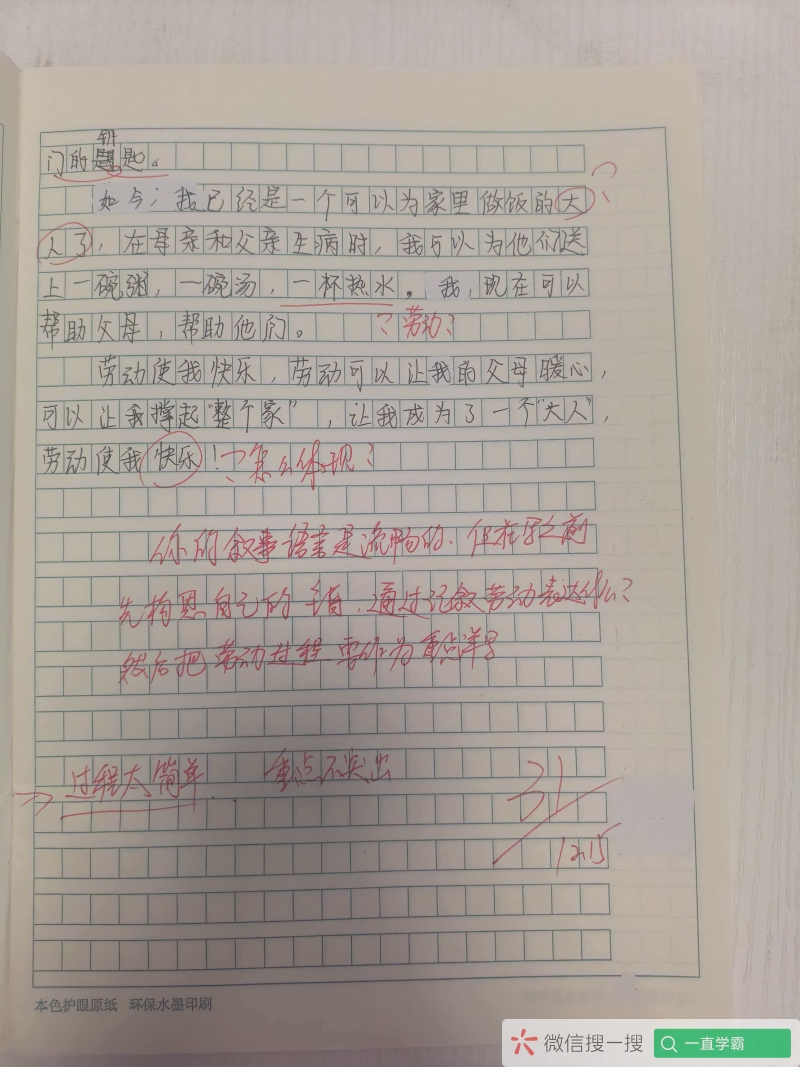 钥
门的题匙。
如今,我已经是一个可以为家里做饭的大
人了,在母亲和父亲生病时,我可以为他们送
上一碗粥,一碗汤,一杯热水。我,现在可以
帮助父母,帮助他们。 ?劳动?
劳动使我快乐,劳动可以让我的父母暖心,
可以让我撑起“整个家”,让我成为了一个“大人”,
劳动使我快乐!?怎么体现?
你的叙事语言是流畅的、但在写之前
先构思自己的主旨,通过记叙劳动表达什么?
然后把劳动过程要作为重点详写
过程太简单. 重点不突出
31
12.15
本色护眼原纸 环保水墨印刷
微信搜一搜 一直学霸